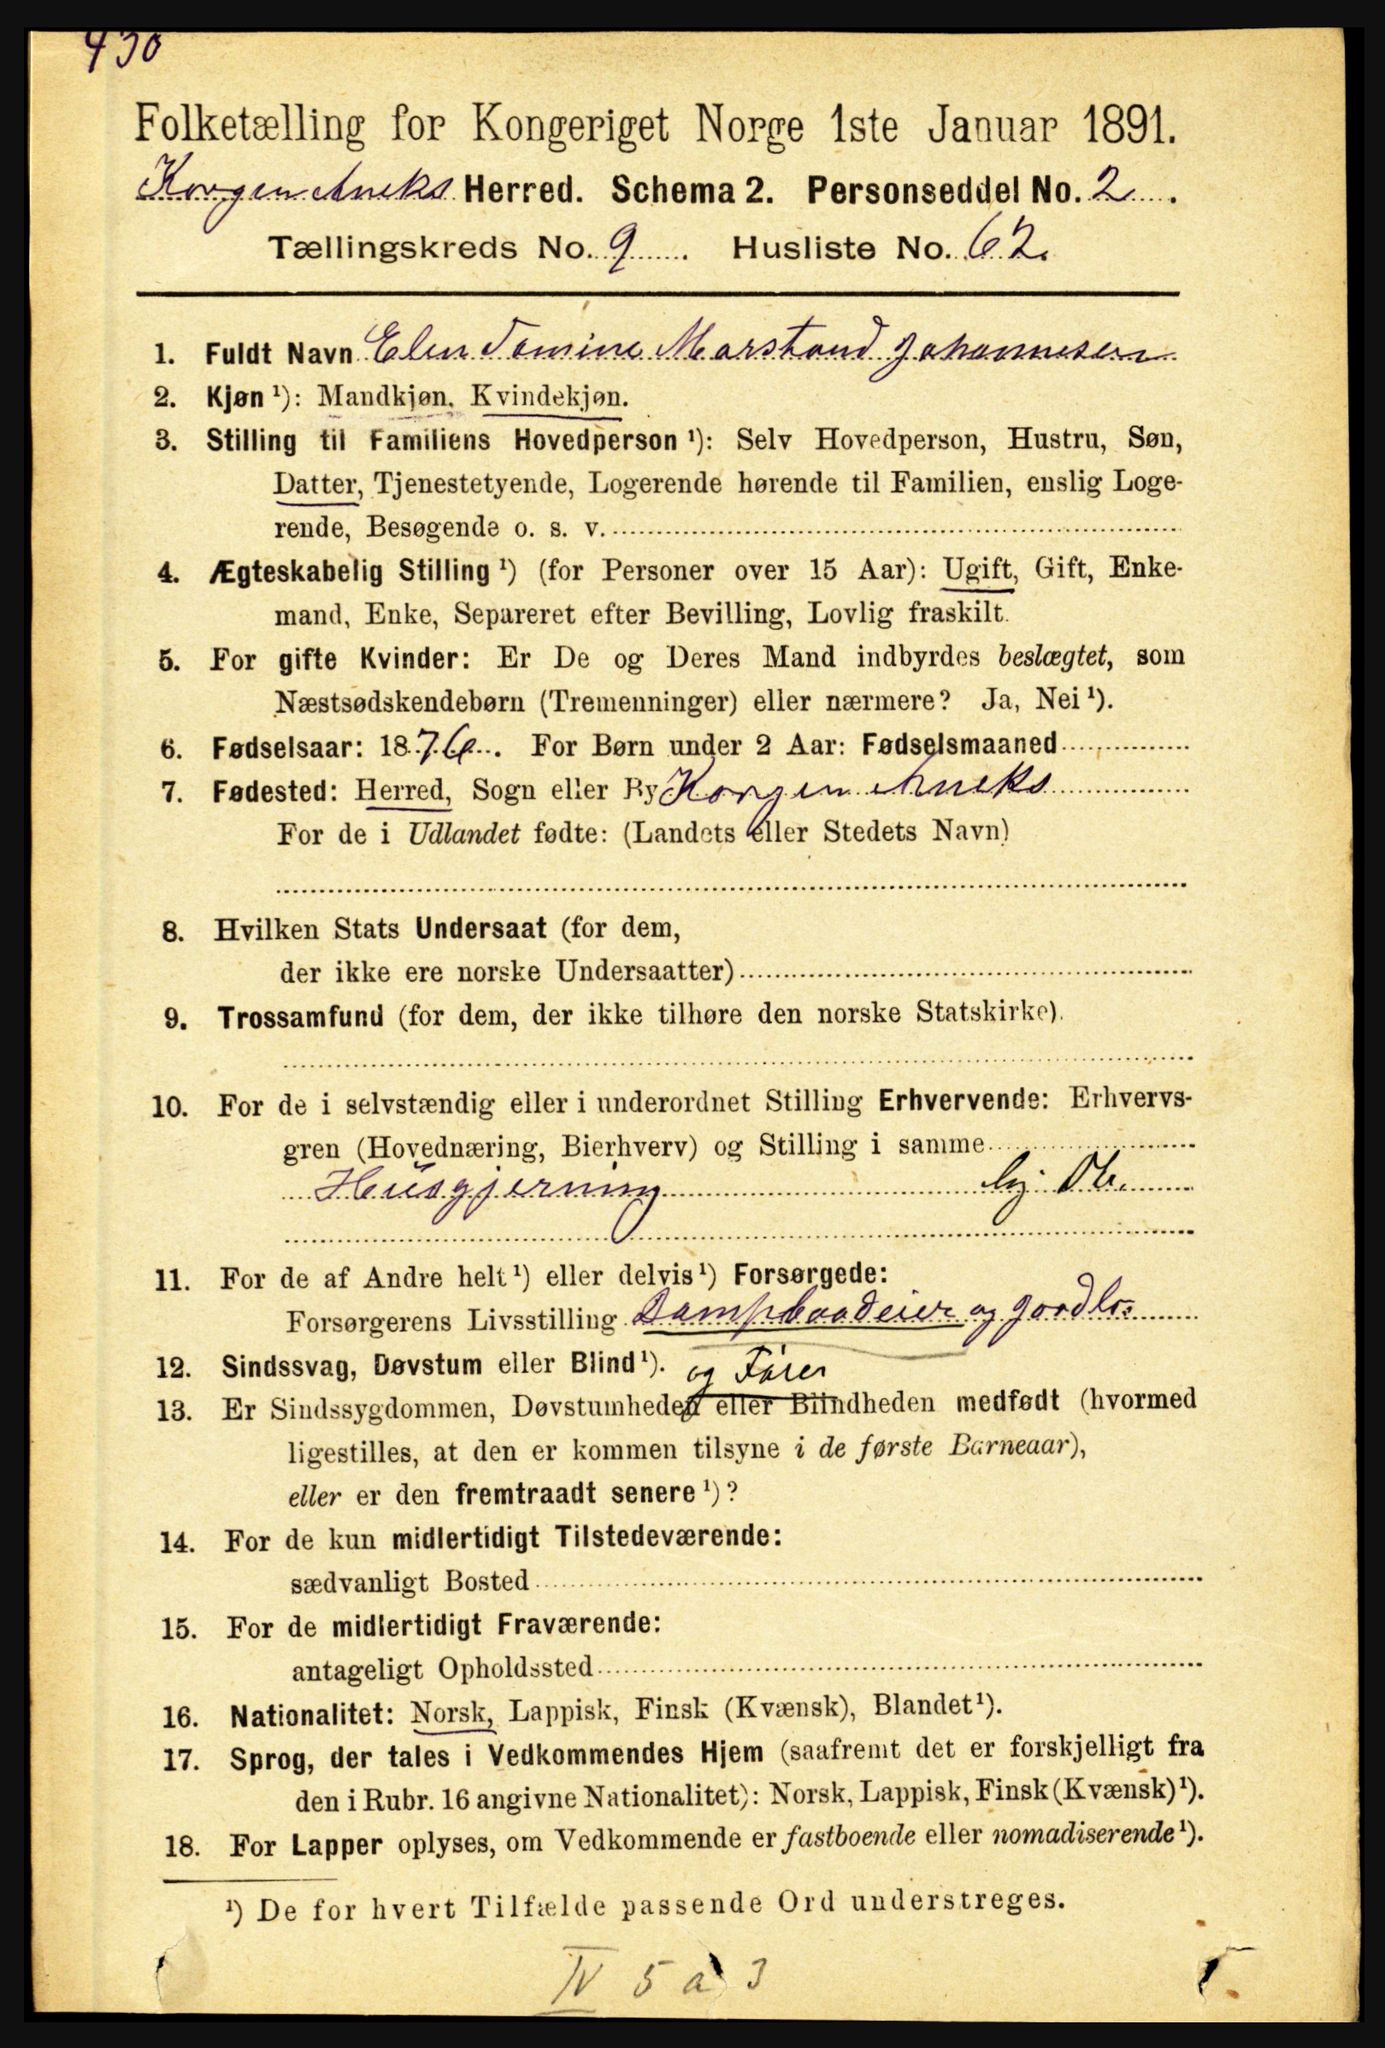 430
Folketælling for Kongeriget Norge 1ste Januar 1891.
Korgen Aneks Herred. Schema 2. Personseddel No. 2.
Tællingskreds No. 9. Husliste No. 62.
1. Fuldt Navn Elen Tomine Marstand Johannesen
2. Kjøn ¹): Mandkjøn, Kvindekjøn.
3. Stilling til Familiens Hovedperson ¹): Selv Hovedperson, Hustru, Søn,
Datter, Tjenestetyende, Logerende hørende til Familien, enslig Loge-
rende, Besøgende o. s. v.
4. Ægteskabelig Stilling ¹) (for Personer over 15 Aar): Ugift, Gift, Enke-
mand, Enke, Separeret efter Bevilling, Lovlig fraskilt.
5. For gifte Kvinder: Er De og Deres Mand indbyrdes beslægtet, som
Næstsødskendebørn (Tremenninger) eller nærmere? Ja, Nei ¹).
6. Fødselsaar: 1876. For Børn under 2 Aar: Fødselsmaaned
7. Fødested: Herred, Sogn eller By Korgen Aneks
For de i Udlandet fødte: (Landets eller Stedets Navn)
8. Hvilken Stats Undersaat (for dem,
der ikke ere norske Undersaatter)
9. Trossamfund (for dem, der ikke tilhøre den norske Statskirke).
10. For de i selvstændig eller i underordnet Stilling Erhvervende: Erhvervs-
gren (Hovednæring, Bierhverv) og Stilling i samme
Husgjerning
11. For de af Andre helt ¹) eller delvis ¹) Forsørgede:
Forsørgerens Livsstilling Dampbaadeier og gaardbr.
og Fører
12. Sindssvag, Døvstum eller Blind ¹).
13. Er Sindssygdommen, Døvstumheden eller Blindheden medfødt (hvormed
ligestilles, at den er kommen tilsyne i de første Barneaar),
eller er den fremtraadt senere ¹)?
14. For de kun midlertidigt Tilstedeværende:
sædvanligt Bosted
15. For de midlertidigt Fraværende:
antageligt Opholdssted
16. Nationalitet: Norsk, Lappisk, Finsk (Kvænsk), Blandet ¹).
17. Sprog, der tales i Vedkommendes Hjem (saafremt det er forskjelligt fra
den i Rubr. 16 angivne Nationalitet): Norsk, Lappisk, Finsk (Kvænsk) ¹).
18. For Lapper oplyses, om Vedkommende er fastboende eller nomadiserende ¹).
¹) De for hvert Tilfælde passende Ord understreges.
IV 5 a 3